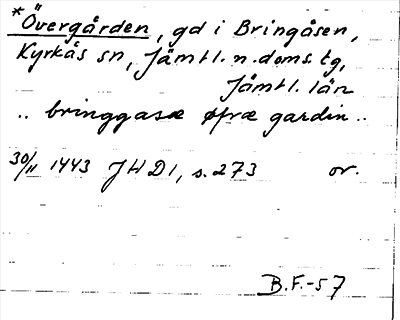 *Övergården, gd i Bringåsen,
Kyrkås sn, Jämtl. n. doms. tg,
Jämtl. län
.. bringgasæ øfræ gardin ..
30/11 1443 JHD1, s. 273 or.
B.F.-57